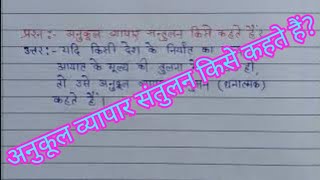 प्रश्न :- अनुकूल व्यापार सन्तुलन किसे कहते हैं?
उत्तर:- यदि किसी देश के निर्यात का
आयात के मूल्य की तुलना
तो उसे अनुकूल (धनात्मक)
कहते हैं।
अनुकूल व्यापार संतुलन किसे कहते हैं?